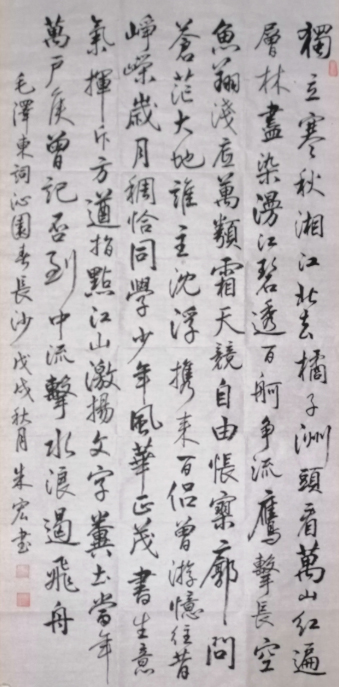 獨立寒秋湘江北去橘子洲頭看萬山紅遍
層林盡染漫江碧透百舸爭流鷹擊長空
魚翔淺底萬類霜天競自由悵寥廓問
蒼茫大地誰主沈浮攜来百侣曾游憶往昔
崢嶸歲月稠恰同學少年風華正茂書生意
氣揮斥方遒指點江山激揚文字糞土當年
萬戶侯曾記否到中流擊水浪遏飛舟
毛澤東詞沁園春長沙戊戌秋月朱宏書